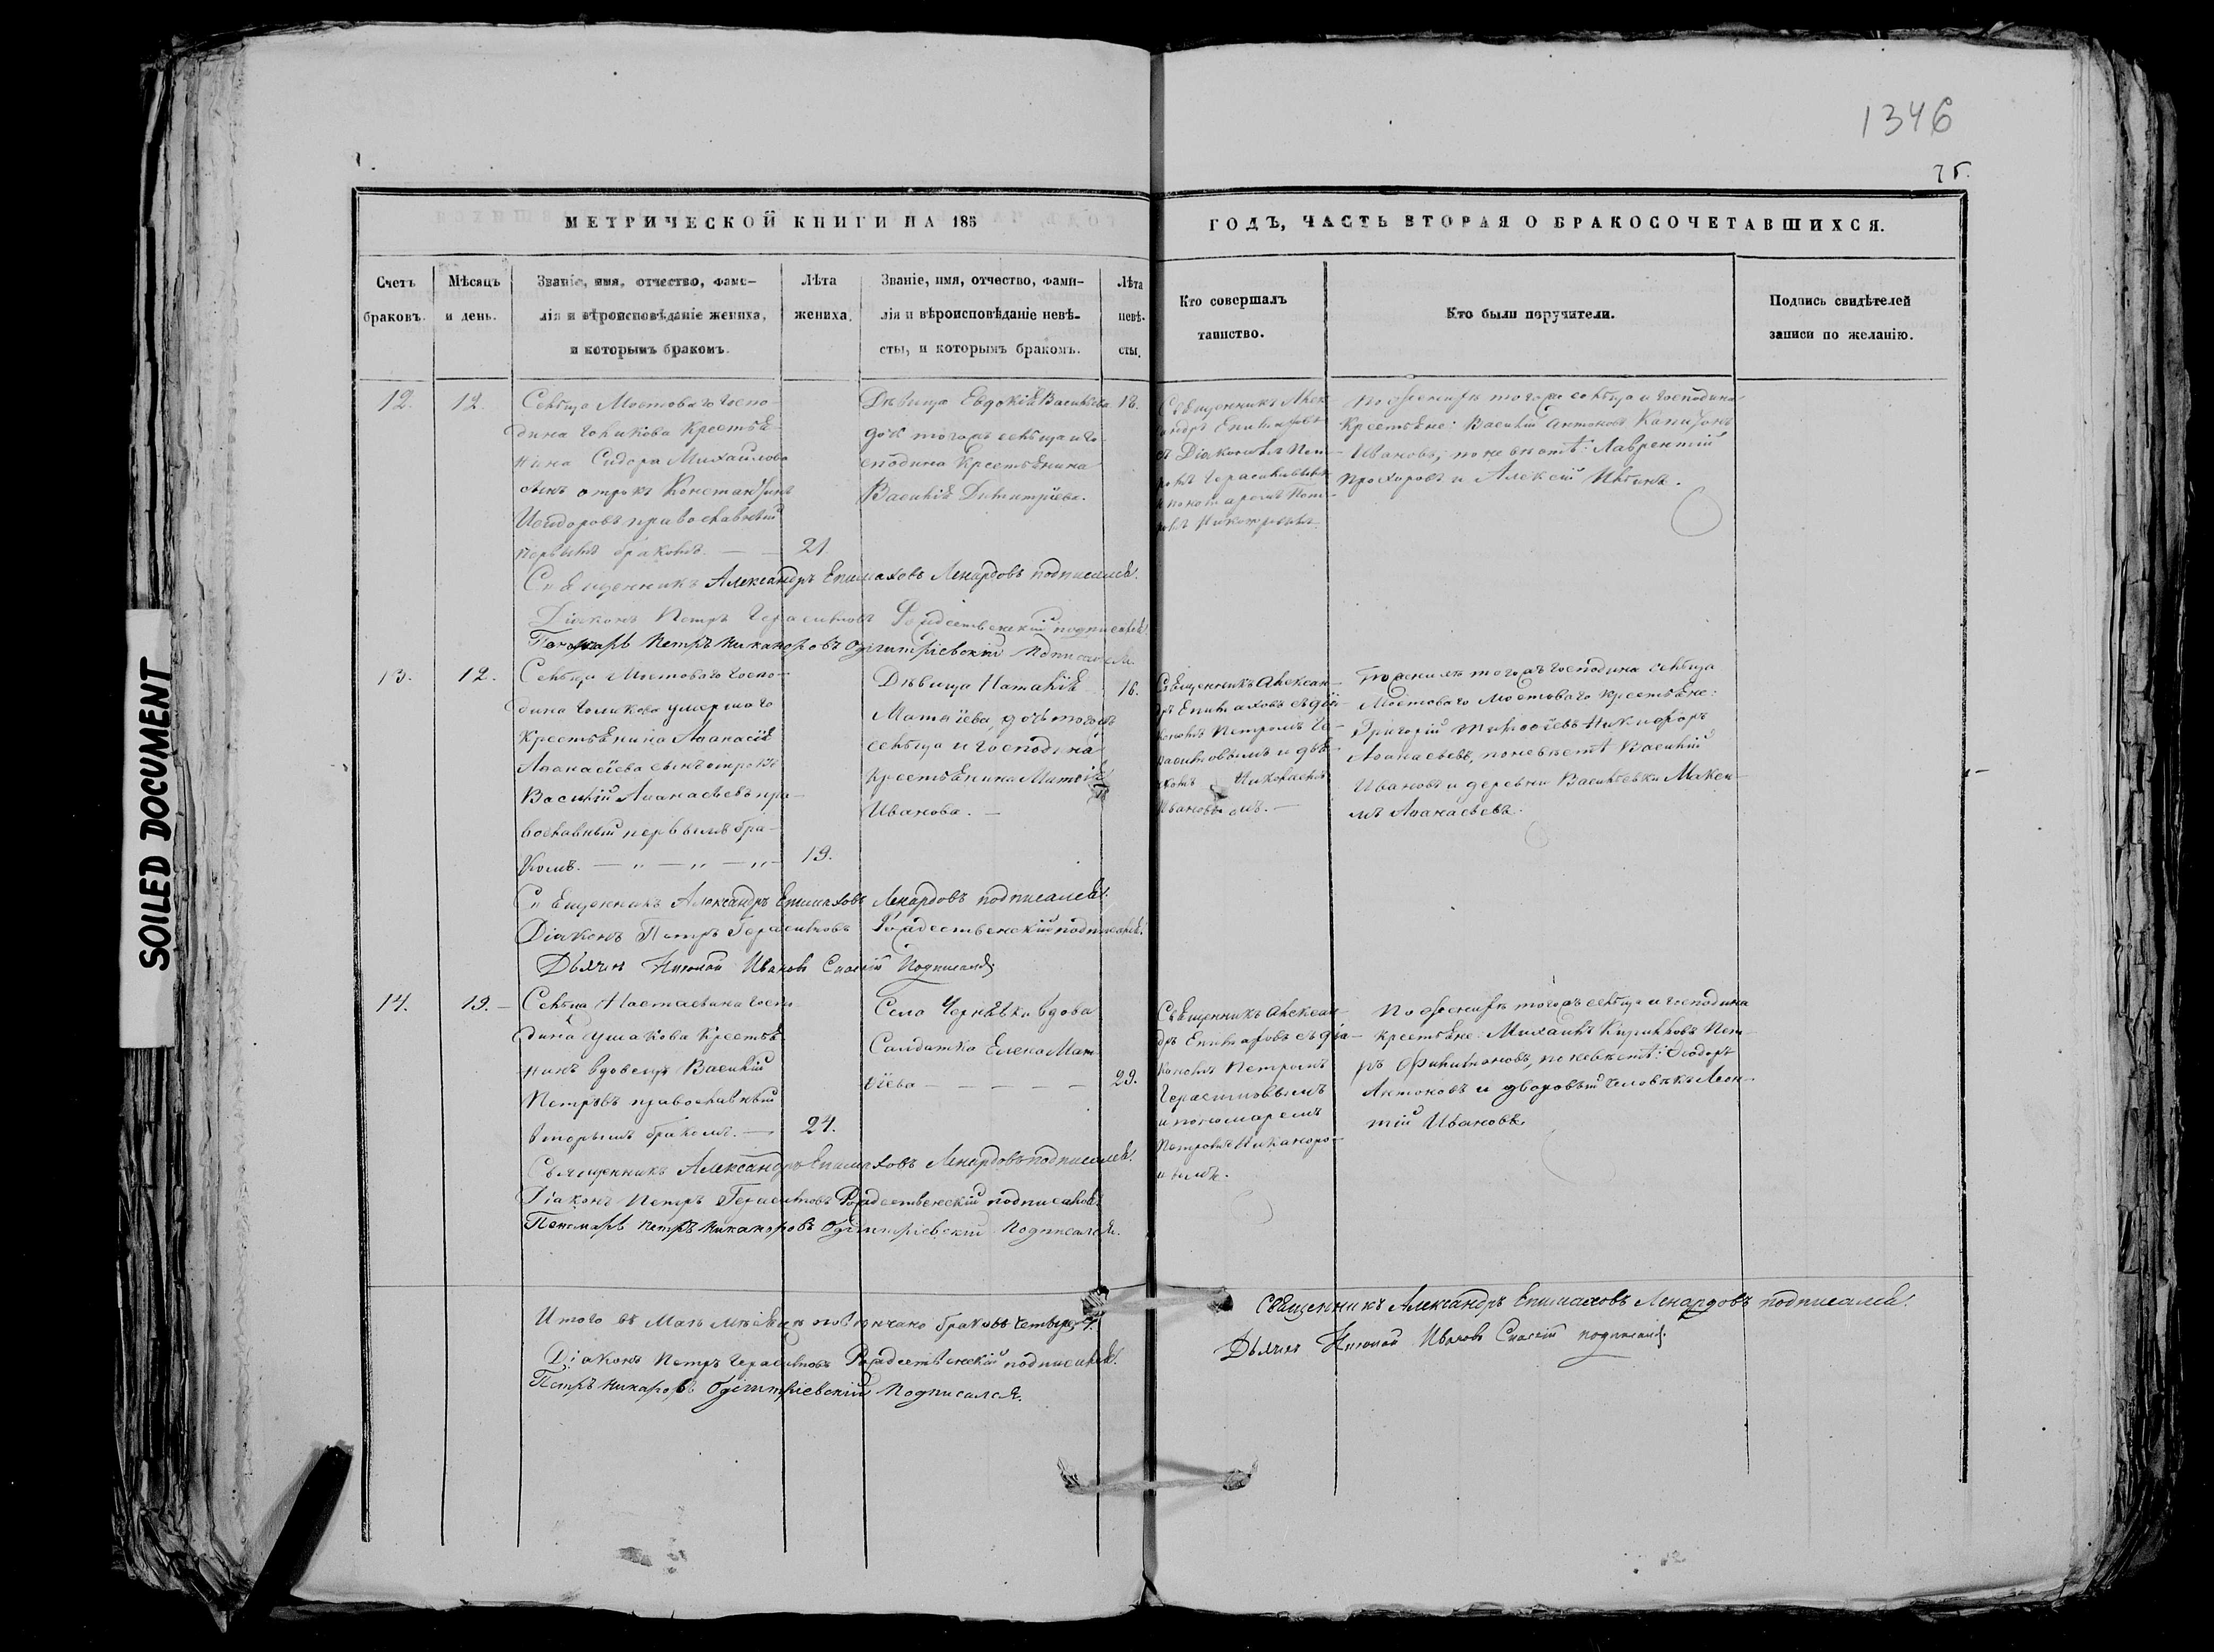 1346
75.
МЕТРИЧЕСКОЙ КНИГИ НА 185
ГОДЪ, ЧАСТЬ ВТОРАЯ О БРАКОСОЧЕТАВШИХСЯ.
Счетъ браковъ.
Мѣсяцъ и день.
Званіе, имя, отчество, фами-
лія и вѣроисповѣданіе жениха,
и которымъ бракомъ.
Лѣта
жениха.
Званіе, имя, отчество, фами-
лія и вѣроисповѣданіе невѣ-
сты, и которымъ бракомъ.
Лѣта
невѣ-
сты.
Кто совершалъ
таинство.
Кто были поручители.
Подпись свидѣтелей
записи по желанію.
12.
12.
Сельца Мостоваго Госпо-
дина Голикова Крестья-
нина Сидора Михайлова
сынъ отрокъ Константинъ
Исидоровъ православный
первымъ бракомъ.
21.
Дѣвица Евдокія Васильева
дочь тогожъ сельца и го-
сподина Крестьянина
Василія Димитріева.
18.
Священникъ Алек-
сандръ Епимаховъ
съ Діакономъ Пет-
ромъ Герасимовымъ
и пономаремъ Пет-
ромъ Никаноровымъ
По женихѣ тогоже сельца и господина
Крестьяне: Василій Антоновъ Капитонъ
Ивановъ; по невѣстѣ: Лаврентій
Прохоровъ и Алексѣй
Священникъ Александръ Епимаховъ Ленардовъ подписался.
Діаконъ Петръ Герасимовъ Рождественскій подписался.
Пономарь Петръ Никаноровъ Одигитріевскій подписался.
13.
12.
Сельца Мостоваго Госпо-
дина Голикова умершаго
Крестьянина Аѳанасія
Аѳанасіева сынъ отрокъ
Василій Аѳанасьевъ пра-
вославный первымъ бра-
комъ.
19.
Дѣвица Наталія
Матѳіева, дочь тогожъ
сельца и Господина
Крестьянина Матѳія
Иванова.
16.
Священникъ Алексан-
дръ Епимаховъ съ діа-
кономъ Петромъ Ге-
расимовымъ и дья-
чкомъ Николаемъ
Ивановымъ.
По женихѣ тогожъ Господина сельца
Мостоваго Мостоваго крестьяне:
Григорій Тимоѳіевъ Никифоръ
Аѳанасьевъ, по невѣстѣ Василій
Ивановъ и деревни Васильевки Макси-
мъ Аѳанасьевъ.
Священникъ Александръ Епимаховъ Ленардовъ подписался.
Діаконъ Петръ Герасимовъ Рождественскій подписался.
Дьячекъ Николай Ивановъ Спасскій подписался
14.
19.
Сельца Настасьина Госпо-
дина Ушакова Крестья-
нинъ вдовецъ Василій
Петровъ православный
вторымъ бракомъ.
24.
Села Чернѣвки вдова
Салдатка Елена Мат-
ѳіева
29.
Священникъ Алексан-
дръ Епимаховъ съ діа-
кономъ Петромъ
Герасимовымъ
и пономаремъ
Петромъ Никаноро-
вымъ.
По женихѣ тогожъ сельца и господина
крестьяне: Михаилъ Кирилловъ Пет-
ръ Филимоновъ, по невѣстѣ: Ѳеодоръ
Антоновъ и дворовый человѣкъ Леон-
тій Ивановъ.
Священникъ Александръ Епимаховъ Ленардовъ подписался.
Діаконъ Петръ Герасимовъ Рождественскій подписался.
Пономарь Петръ Никаноровъ Одигитріевскій Подписался.
Итого въ Маѣ мѣсяцѣ повѣнчано браковъ четыре 4.
Діаконъ Петръ Герасимовъ Рождественскій подписался.
Петръ Никаноровъ Одигитріевскій Подписался.
Священникъ Александръ Епимаховъ Ленардовъ подписался.
Дьячекъ Николай Ивановъ Спасскій подписался.
SOILED DOCUMENT